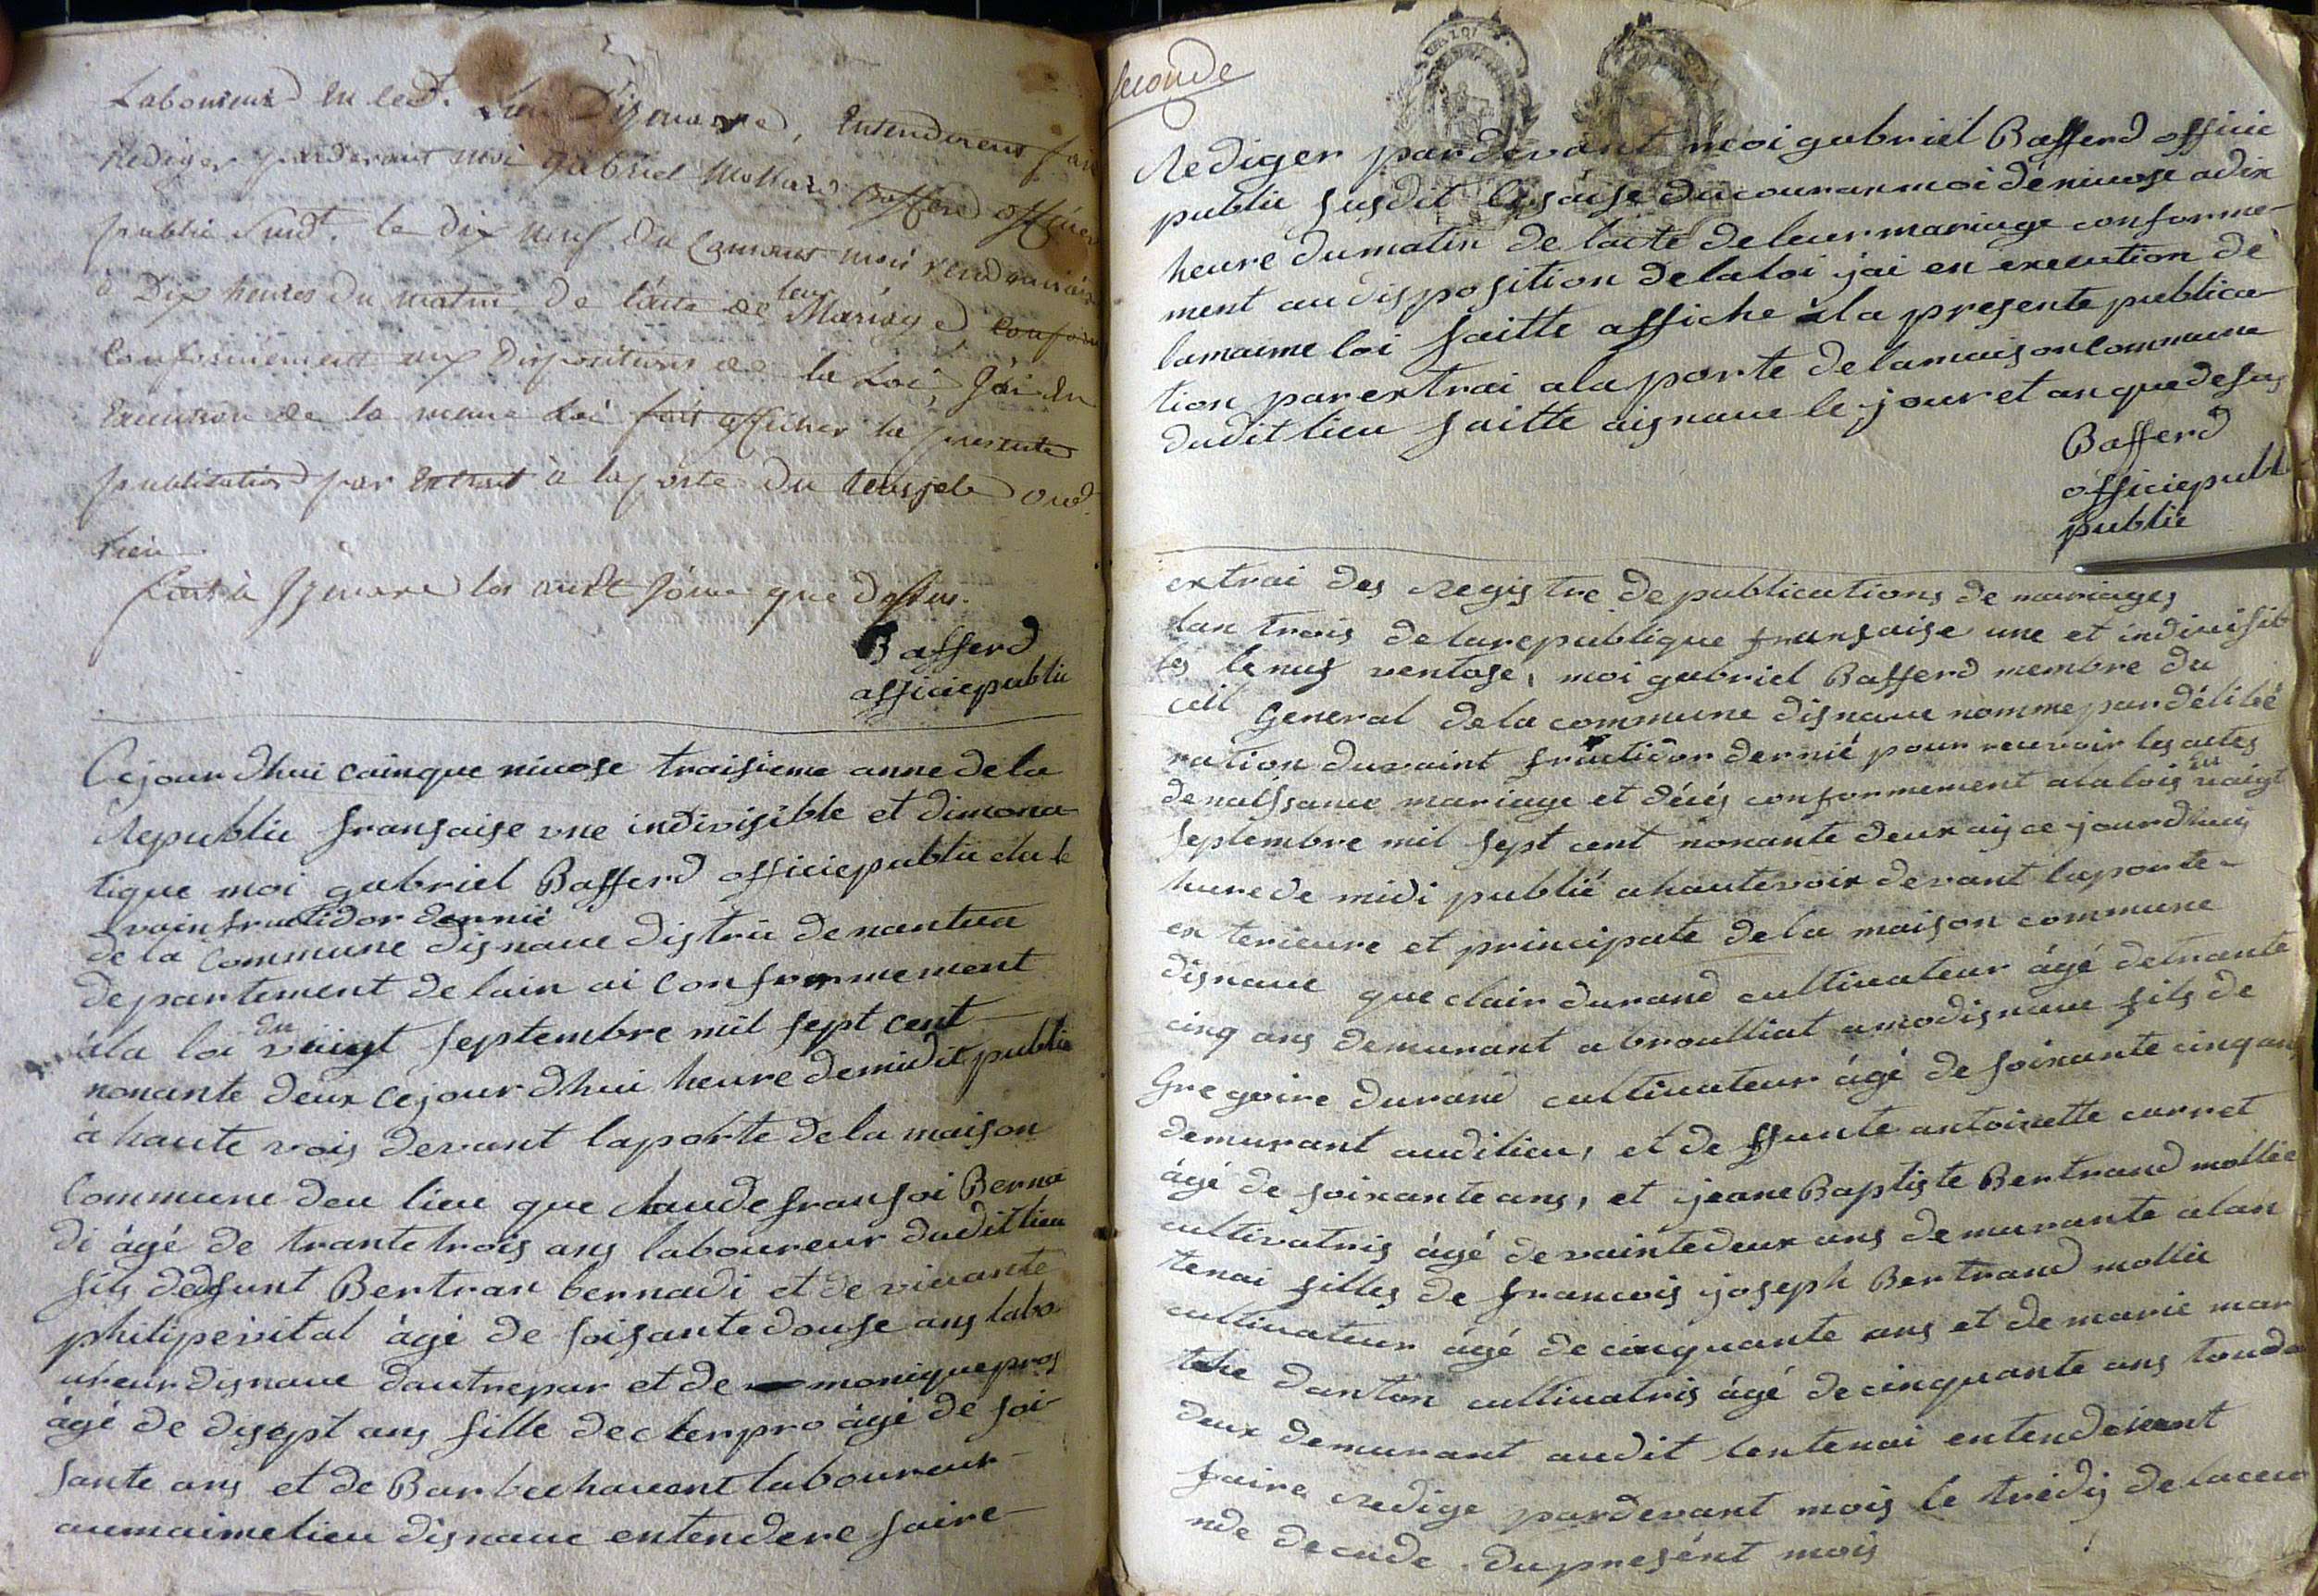 Laboureur en led. lieu D'izenave, Entendirent faire
Rediger pardevant moi gabriel Mollard Bafferd officier
public Susdt. le dix neuf du Courant mois vendemiaire
à Dix heures du matin de l'acte de leur Mariage confor
Conformement aux Dispositions de la Loi, J'ai En
Execution de la meme Loi fait afficher la presente
publication par Extrait à la porte du temple dud.
Lieu
fait à Izenave les an et jour que dessus.
Bafferd
officiepublic
Cejourdhui cainque nivose traisieme anne de la
Republic fransaise vne indivisible et dimona
tique moi gabriel Bafferd officiepublic élu le
vain fructidor dernié
de la commune disnave distric de nantua
departement de lain ai conformement
àla loi du vaigt septembre mil sept cent
nonante deux cejourdhui heure demidit public
à haute vois devant laporte de la maison
Commune deu lieu que claude fransoi Berna
di âgé de trante trois ans laboureur dudit lieu
fils dedfunt Bertran bernadi et de vivante
philipe vital âgé de soisante douse ans labo
ureur disnave dautrepar et de monique pros
âgé de disept ans fille de cler pro âgé de soi-
sante ans et de Barbe chavent laboureur
aumaime lieu disnave entendere faire
seconde
Rediger pardevant moi gabriel Bafferd officie
public susdit le saise du couran moi de nivose a dix
heure du matin de lacte de leur mariage conforme-
ment au disposition de la loi jai en execution de
la maime loi faitte affiche à la presente publica
tion par extrai a la porte de la maison commune
dudit lieu faitte aisnave le jour et an que desus
Bafferd
officiepubl
public
extrai des Registre de publications de mariages
lan trois de la republique fransaise une et indivisib
les le nuf ventose, moi gabriel Bafferd membre du
cell General de la commune disnave nomme par délibé
ration du vaint fructidor dernié pour recevoir les actes
de naissance mariage et décés conformement a la lois du vaigt
septembre mil sept cent nonante deux aij ce jourdhuij
hure de midi publié a haute voix devant la porte
exterieure et principale de la maison commune
disnave que clair durand cultivateur âgé de trante
cinq ans demurant a broulliat amodisnave fils de
Gregoire durand cultivateur âgé de soixante cinq ans
demurant audilieu, et de ffunte antoinette carret
âgé de soixante ans, et jeane Baptiste Bertrand mollié
cultivatris âgé de vainte deux ans demurante a lan
tenai filles de francois joseph Bertrand mollie
cultivateur âgé de cinquante ans et de marie mar
the danton cultivatris âgé de cinquante ans toude
deux demurant audit lentenai entendeirent
faire Redige pardevant mois le tridis de la ceco
nde decade du présént mois